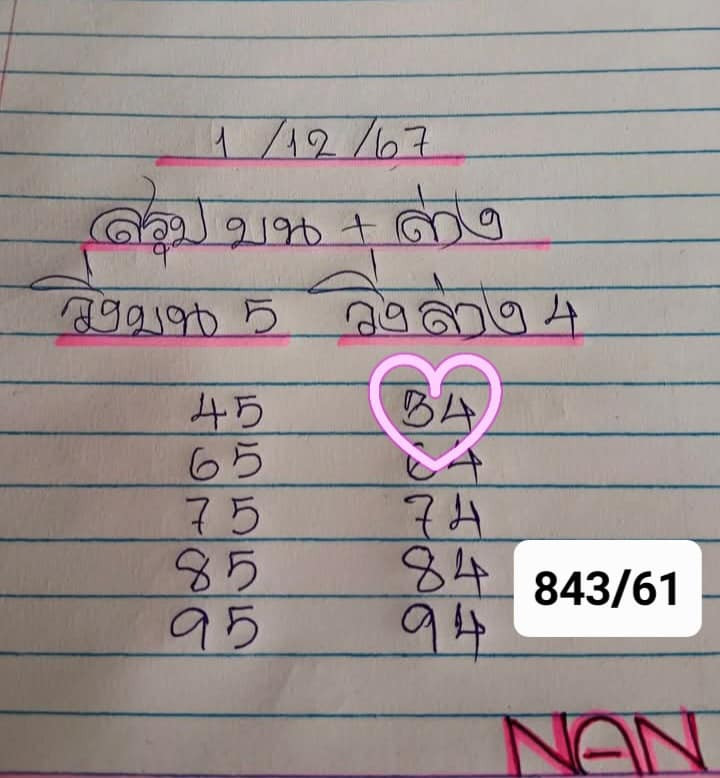 1/12/67
สรุป บน + ล่าง
วิ่งบน 5 วิ่งล่าง 4
45 34
65 64
75 74
85 84
95 94
843/61
NAN